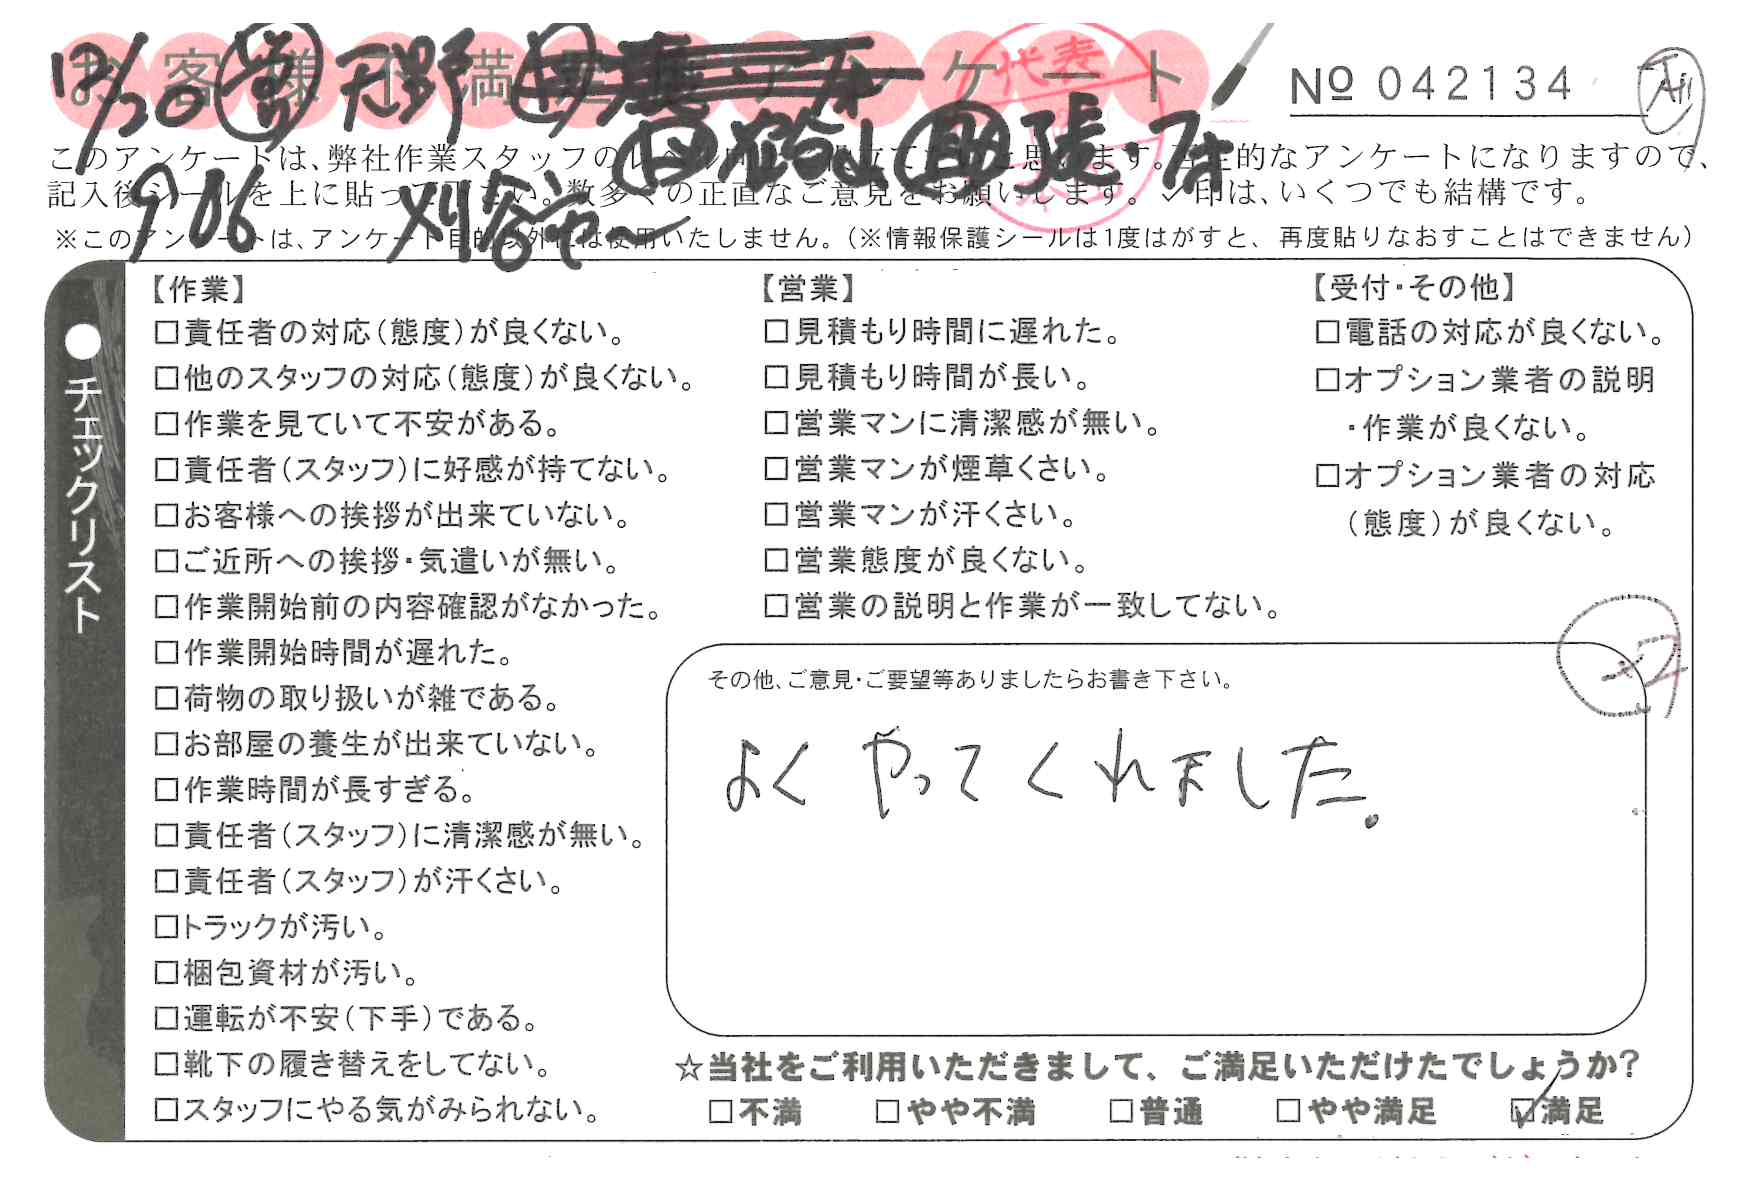 お客様不満足度アンケート
№ 042134
12/20 営 天野
作 谷山 助 張・
906 刈谷
このアンケートは、弊社作業スタッフの
記入後シールを上に貼って下さい。数多くの正直なご意見をお願いします。✓印は、いくつでも結構です。
※このアンケートは、アンケート目的以外には使用いたしません。（※情報保護シールは1度はがすと、再度貼りなおすことはできません）
●チェックリスト
【作業】
□責任者の対応（態度）が良くない。
□他のスタッフの対応（態度）が良くない。
□作業を見ていて不安がある。
□責任者（スタッフ）に好感が持てない。
□お客様への挨拶が出来ていない。
□ご近所への挨拶・気遣いが無い。
□作業開始前の内容確認がなかった。
□作業開始時間が遅れた。
□荷物の取り扱いが雑である。
□お部屋の養生が出来ていない。
□作業時間が長すぎる。
□責任者（スタッフ）に清潔感が無い。
□責任者（スタッフ）が汗くさい。
□トラックが汚い。
□梱包資材が汚い。
□運転が不安（下手）である。
□靴下の履き替えをしてない。
□スタッフにやる気がみられない。
【営業】
□見積もり時間に遅れた。
□見積もり時間が長い。
□営業マンに清潔感が無い。
□営業マンが煙草くさい。
□営業マンが汗くさい。
□営業態度が良くない。
□営業の説明と作業が一致してない。
【受付・その他】
□電話の対応が良くない。
□オプション業者の説明
・作業が良くない。
□オプション業者の対応
（態度）が良くない。
その他、ご意見・ご要望等ありましたらお書き下さい。
よくやってくれました。
☆当社をご利用いただきまして、ご満足いただけたでしょうか？
□不満 □やや不満 □普通 □やや満足 ☑満足